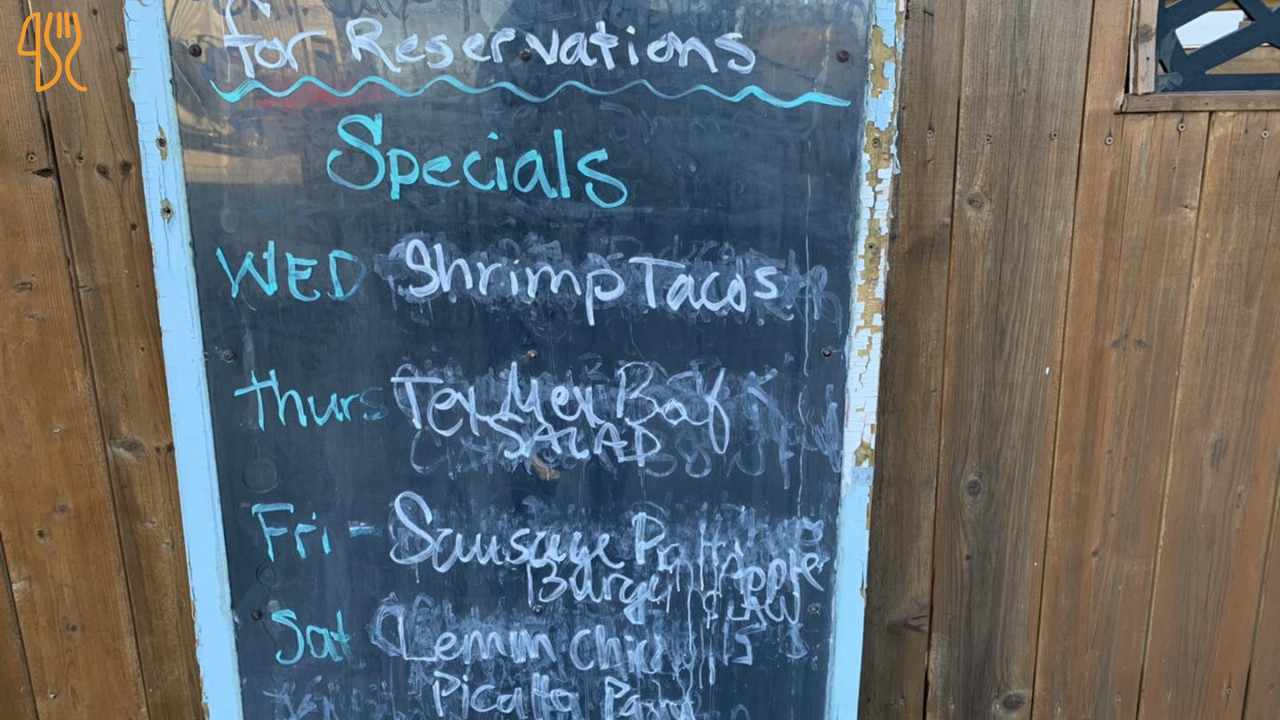 for Reservations
Specials
WED Shrimp Tacos
Thurs Tex Mex Bof
SALAD
Fri - Sausage Patti
Burger Apple
SLAW
Sat Lemon Chic
Picatta